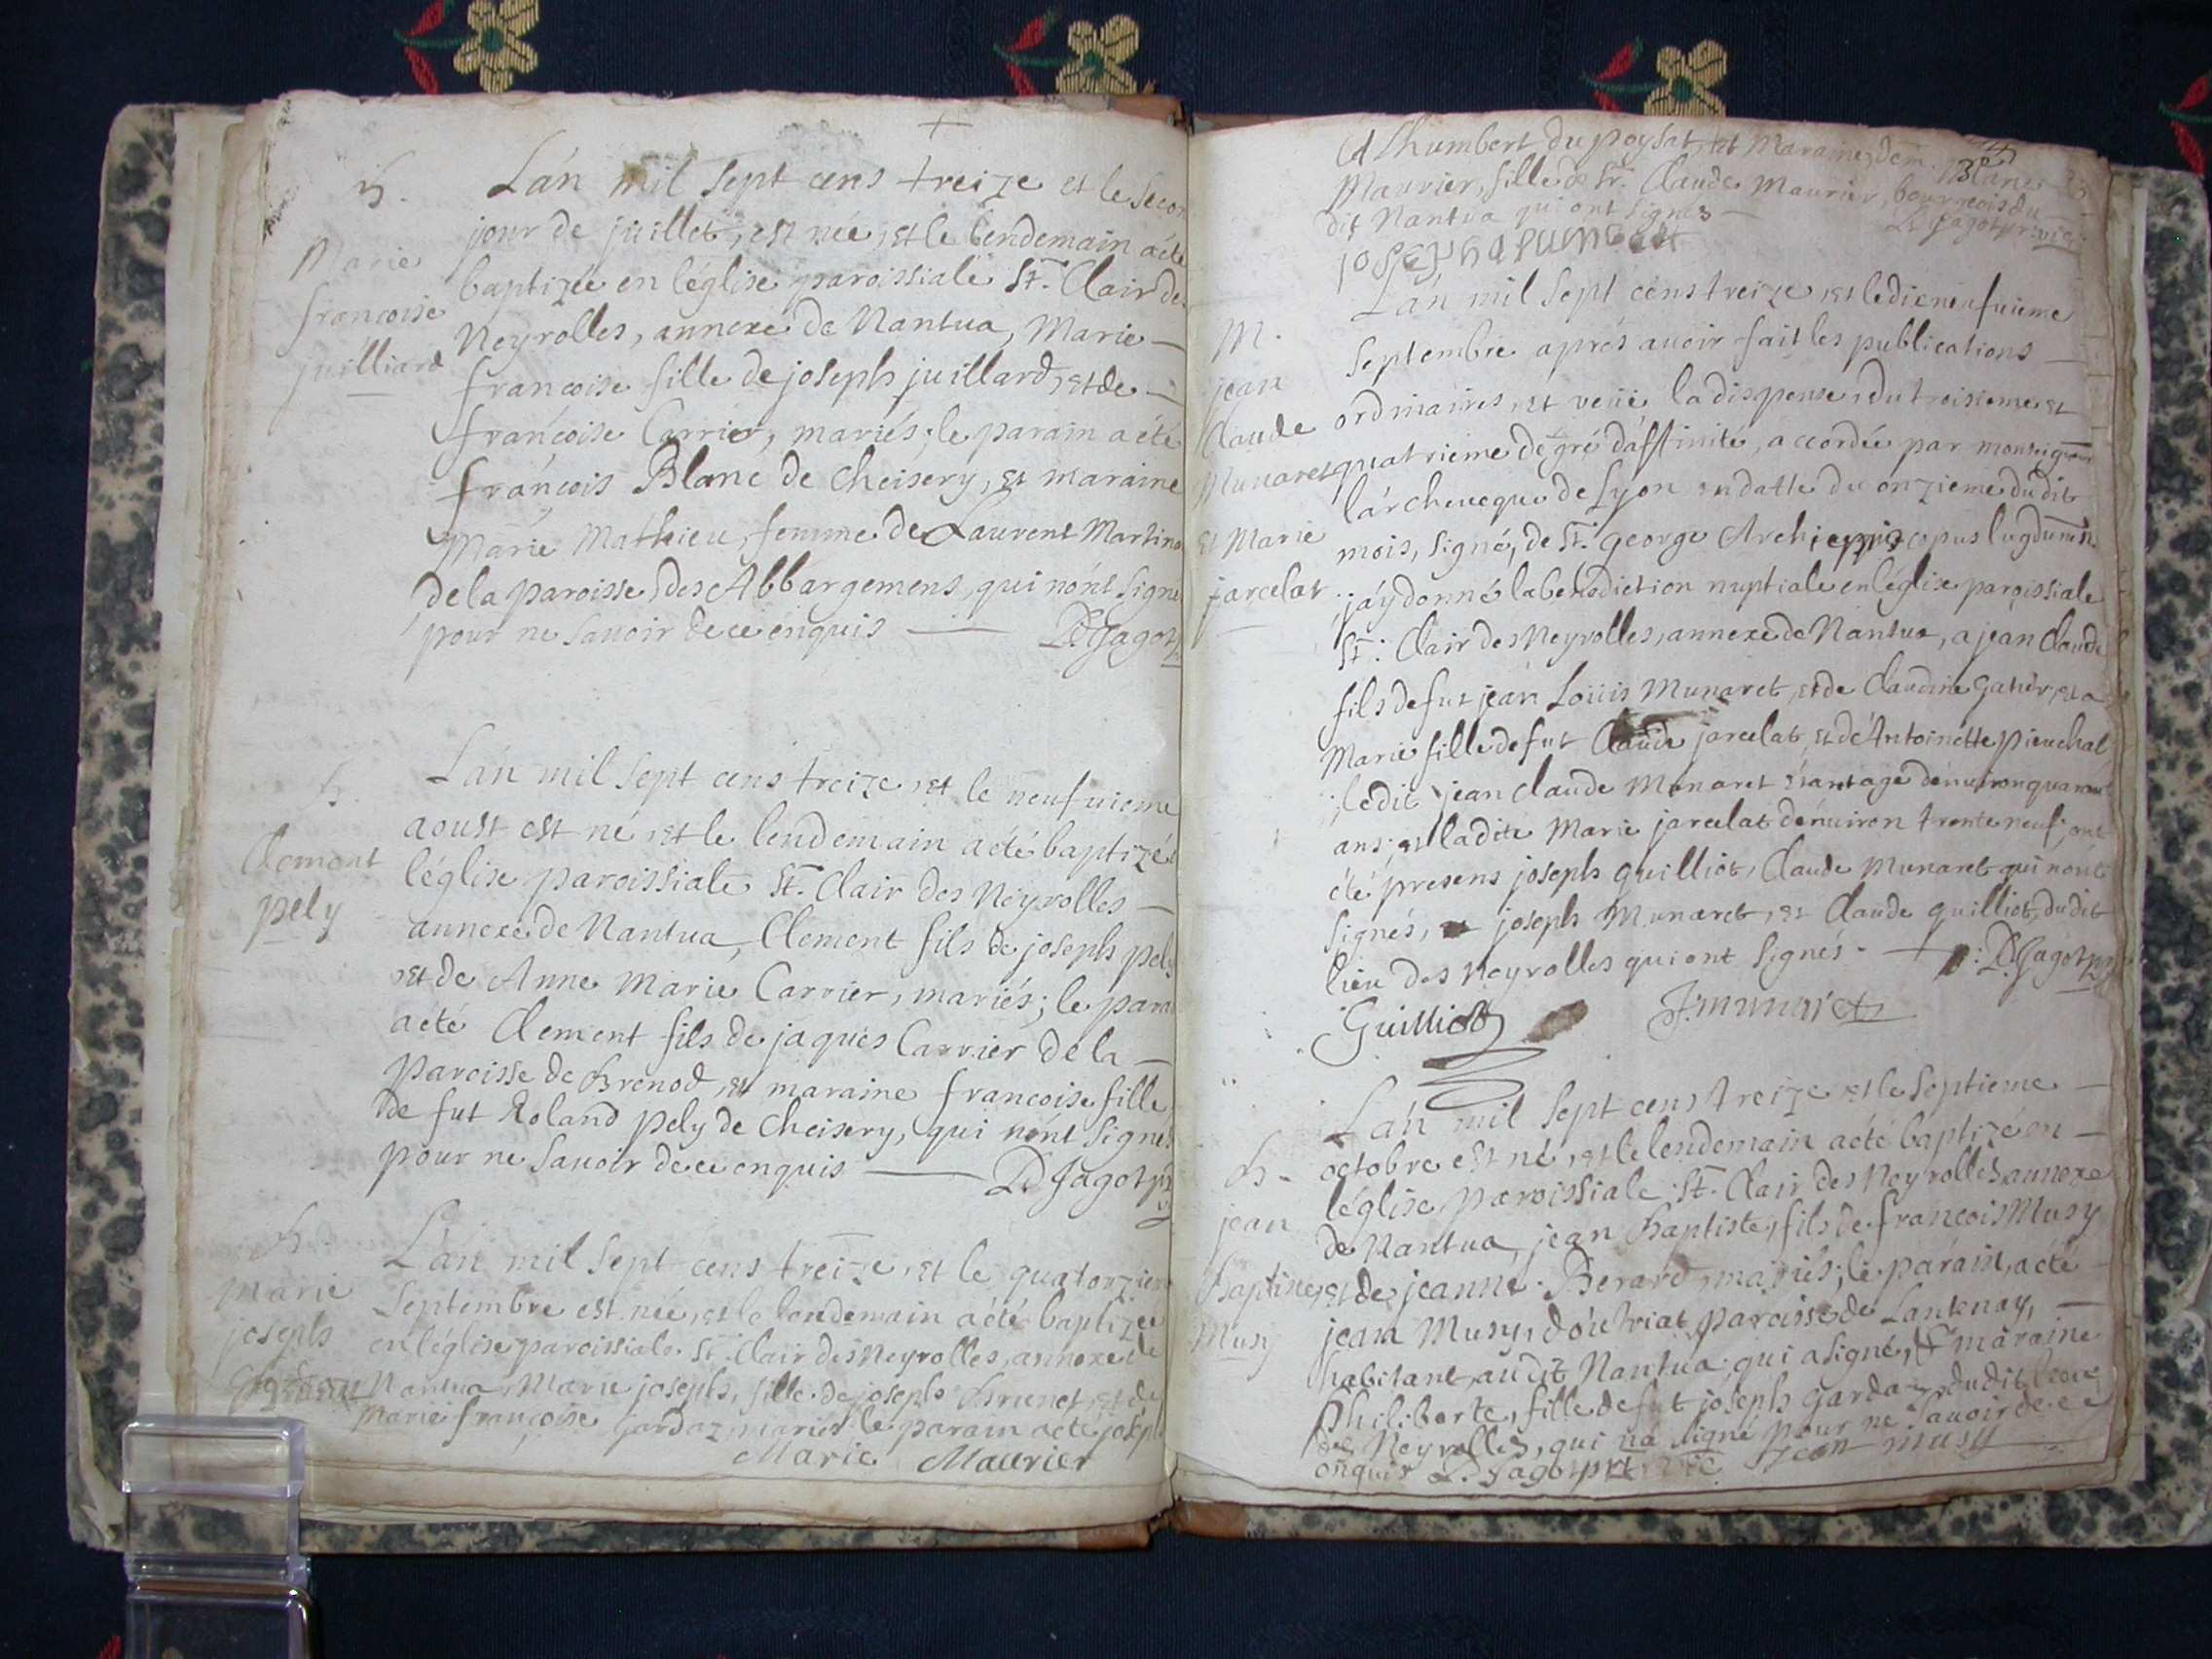 B.
Marie
francoise
juilliard
Lán mil sept cens treize et le secon
jour de juillet, est née, et le lendemain a été
baptizée en léglise paroissiale St. Clair de
Neyrolles, annexe de Nantua, Marie
francoise fille de joseph juillard, et de
francoise Carrier, mariés; le parain a été
francois Blanc de Cheisery, et maraine
Marie Mathieu, femme de Laurent Martino
de la paroisse des Abbargemens, qui nónt signé
pour ne savoir de ce enquis D Jagot
B.
Clement
pely
Lán mil sept cens treize, et le neufuieme
aoust est né, et le lendemain a été baptizé
léglise paroissiale St. Clair des Neyrolles
annexe de Nantua, Clement fils de joseph pely
et de Anne Marie Carrier, mariés; le para
a été Clement fils de jaques Carrier de la
paroisse de Brenod, et maraine francoise fille
de fut Roland pely de Cheisery, qui nónt signés
pour ne savoir de ce enquis D Jagot
B.
Marie
joseph
Lán mil sept cens treize, et le quatorzieme
Septembre est née, et le lendemain a été baptizée
en léglise paroissiale St. Clair des Neyrolles, annexe de
Nantua, Marie joseph, fille de joseph Brunet, et de
Marie françoise gardaz, mariés le parain a été joseph
Marie Maurier
Dhumbert du poysat, et Maraine, dem. Blanc
Maurier, fille de Sr. Claude Maurier, bourgeois du
dit Nantua qui ont signés
D Jagot
M.
jean
Claude
Munaret
et Marie
jarcelat
Lán mil sept cens treize, et le dieneufuieme
septembre aprés auoir fait les publications
ordinaires, et veüe la dispense, du troisieme et
quatrieme degré dáffinité, accordée par monseigneur
lárcheueque de Lyon en datte du onzieme dudit
mois, signé, de St. george Archiepiscopus lugdunen.
jáy donné la benediction nuptiale en léglise paroissiale
St. Clair des Neyrolles, annexe de Nantua, a jean Claude
fils de fut jean Loüis Munaret, et de Claudine et a
Marie fille de fut Claude jarcelat, et dé Antoinette
ledit jean Claude Munaret étant agé dénuiron quarante
ans; et ladite Marie jarcelat dénuiron trente neuf; ont
été presens joseph guilliot, Claude Munaret qui nónt
signés, et joseph Munaret, et Claude guilliot, dudit
lieu des Neyrolles qui ont signés. D Jagot
Guilliot J. munaret
B.
jean
Baptiste
Musy
Lán mil sept cens treize et le septieme
octobre est né, et le lendemain a été baptizé en
léglise paroissiale St. Clair des Neyrolles annexe
de Nantua, jean Baptiste, fils de francois Musy
et de jeanne Berard, mariés; le parain, a été
jean Musy, dóutriat paroisse de Lantenay,
habitant, audit Nantua; qui a signé, et maraine
Philiberte, fille de fut joseph gardaz, dudit lieu
des Neyrolles, qui na signé pour ne savoir de ce
enquis D. Jagot jean musy